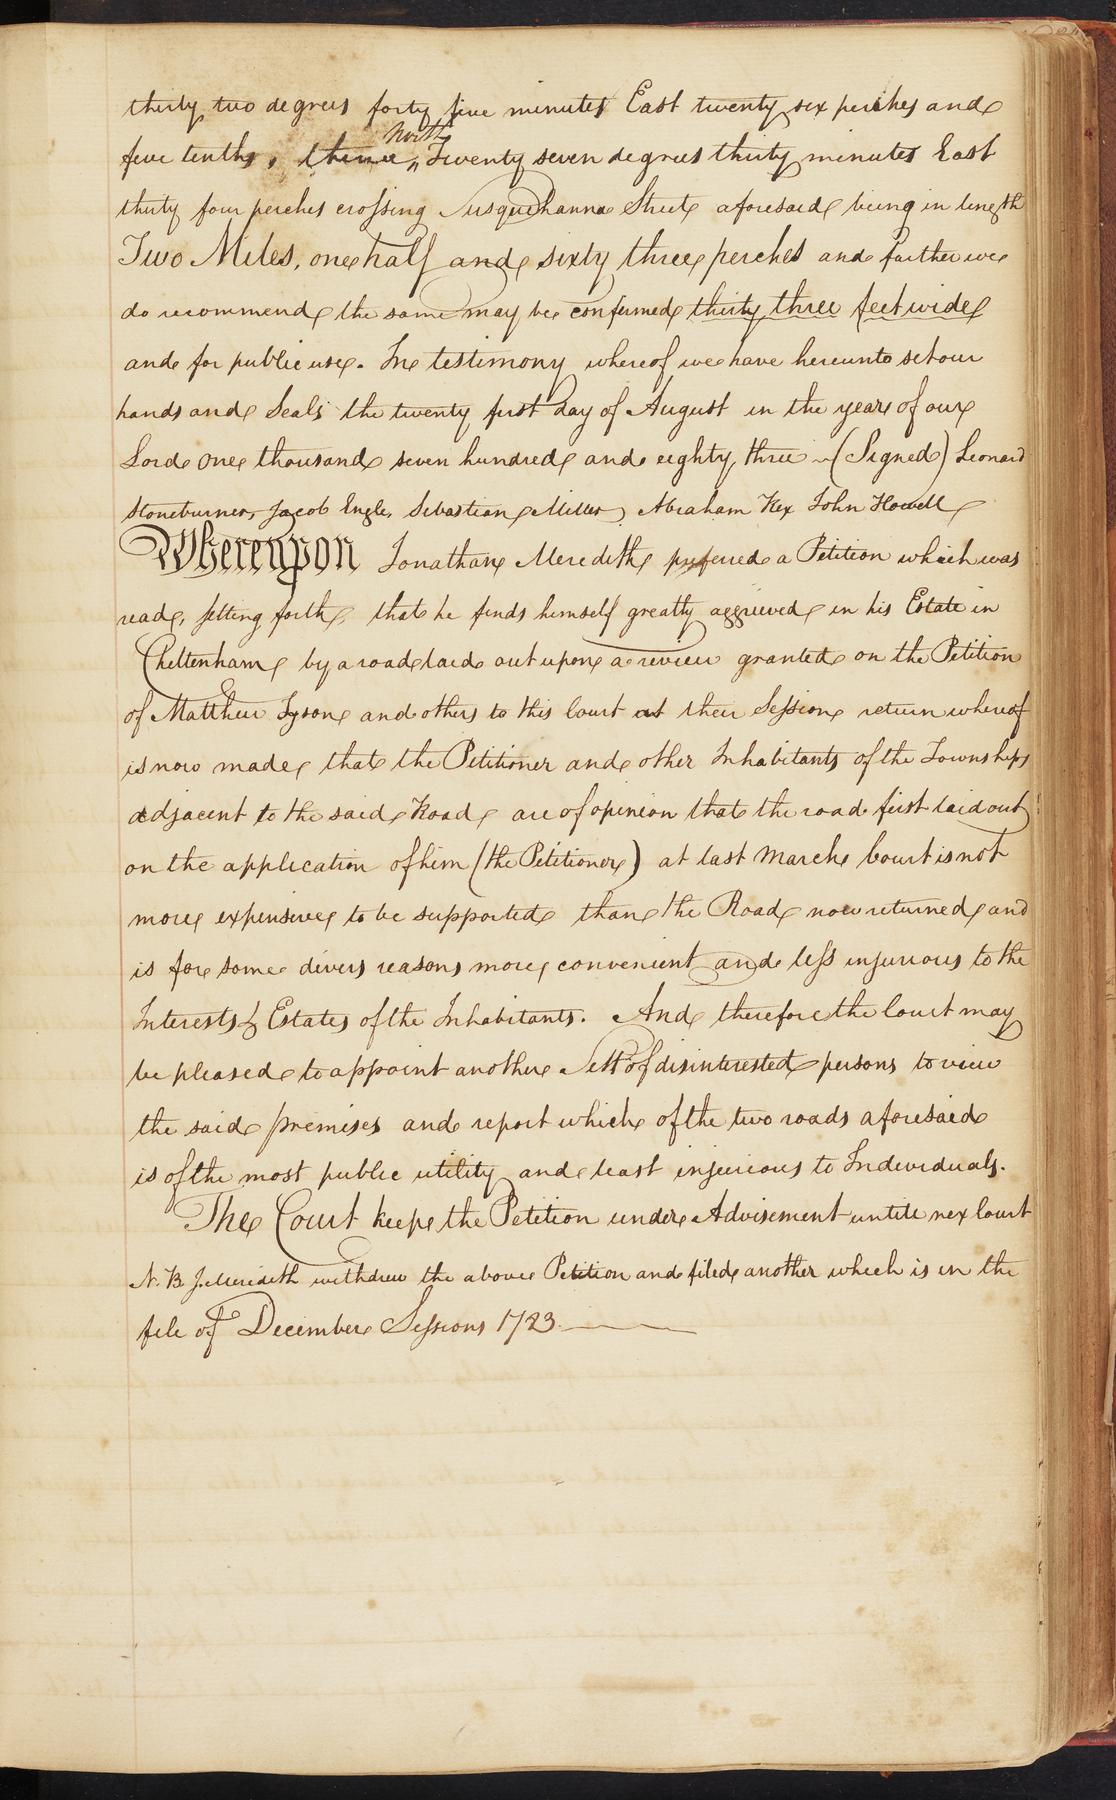 thirty two degrees forty five minutes East twenty six perches and
five tenths, thence North Twenty seven degrees thirty minutes East
thirty four perches crossing Susquehanna Street aforesaid being in length
Two Miles, one half and sixty three perches and further we
do recommend the same may be confirmed thirty three feet wide
and for public use. In testimony whereof we have hereunto set our
hands and Seals the twenty first day of August in the year of our
Lord One thousand seven hundred and eighty three (Signed) Leonard
Stoneburner, Jacob Engle, Sebastian Miller, Abraham Rex John Howell
Whereupon Jonathan Meredith preferred a Petition which was
read, setting forth, that he finds himself greatly aggrieved in his Estate in
Cheltenham by a road laid out upon a review granted on the Petition
of Matthew Tyson and others to this Court at their Session return whereof
is now made, that the Petitioner and other Inhabitants of the Townships
adjacent to the said Road are of opinion that the road first laid out
on the application of him (the Petitioner) at last March Court is not
more expensive to be supported than the Road now returned and
is for some divers reasons more convenient and less injurious to the
Interests & Estates of the Inhabitants. And therefore the Court may
be pleased to appoint another Sett of disinterested persons to view
the said premises and report which of the two roads aforesaid
is of the most public utility and least injurious to Individuals.
The Court keeps the Petition under Advisement untill nex Court
N.B J. Meredith withdrew the above Petition and filed another which is in the
file of December Sessions 1783